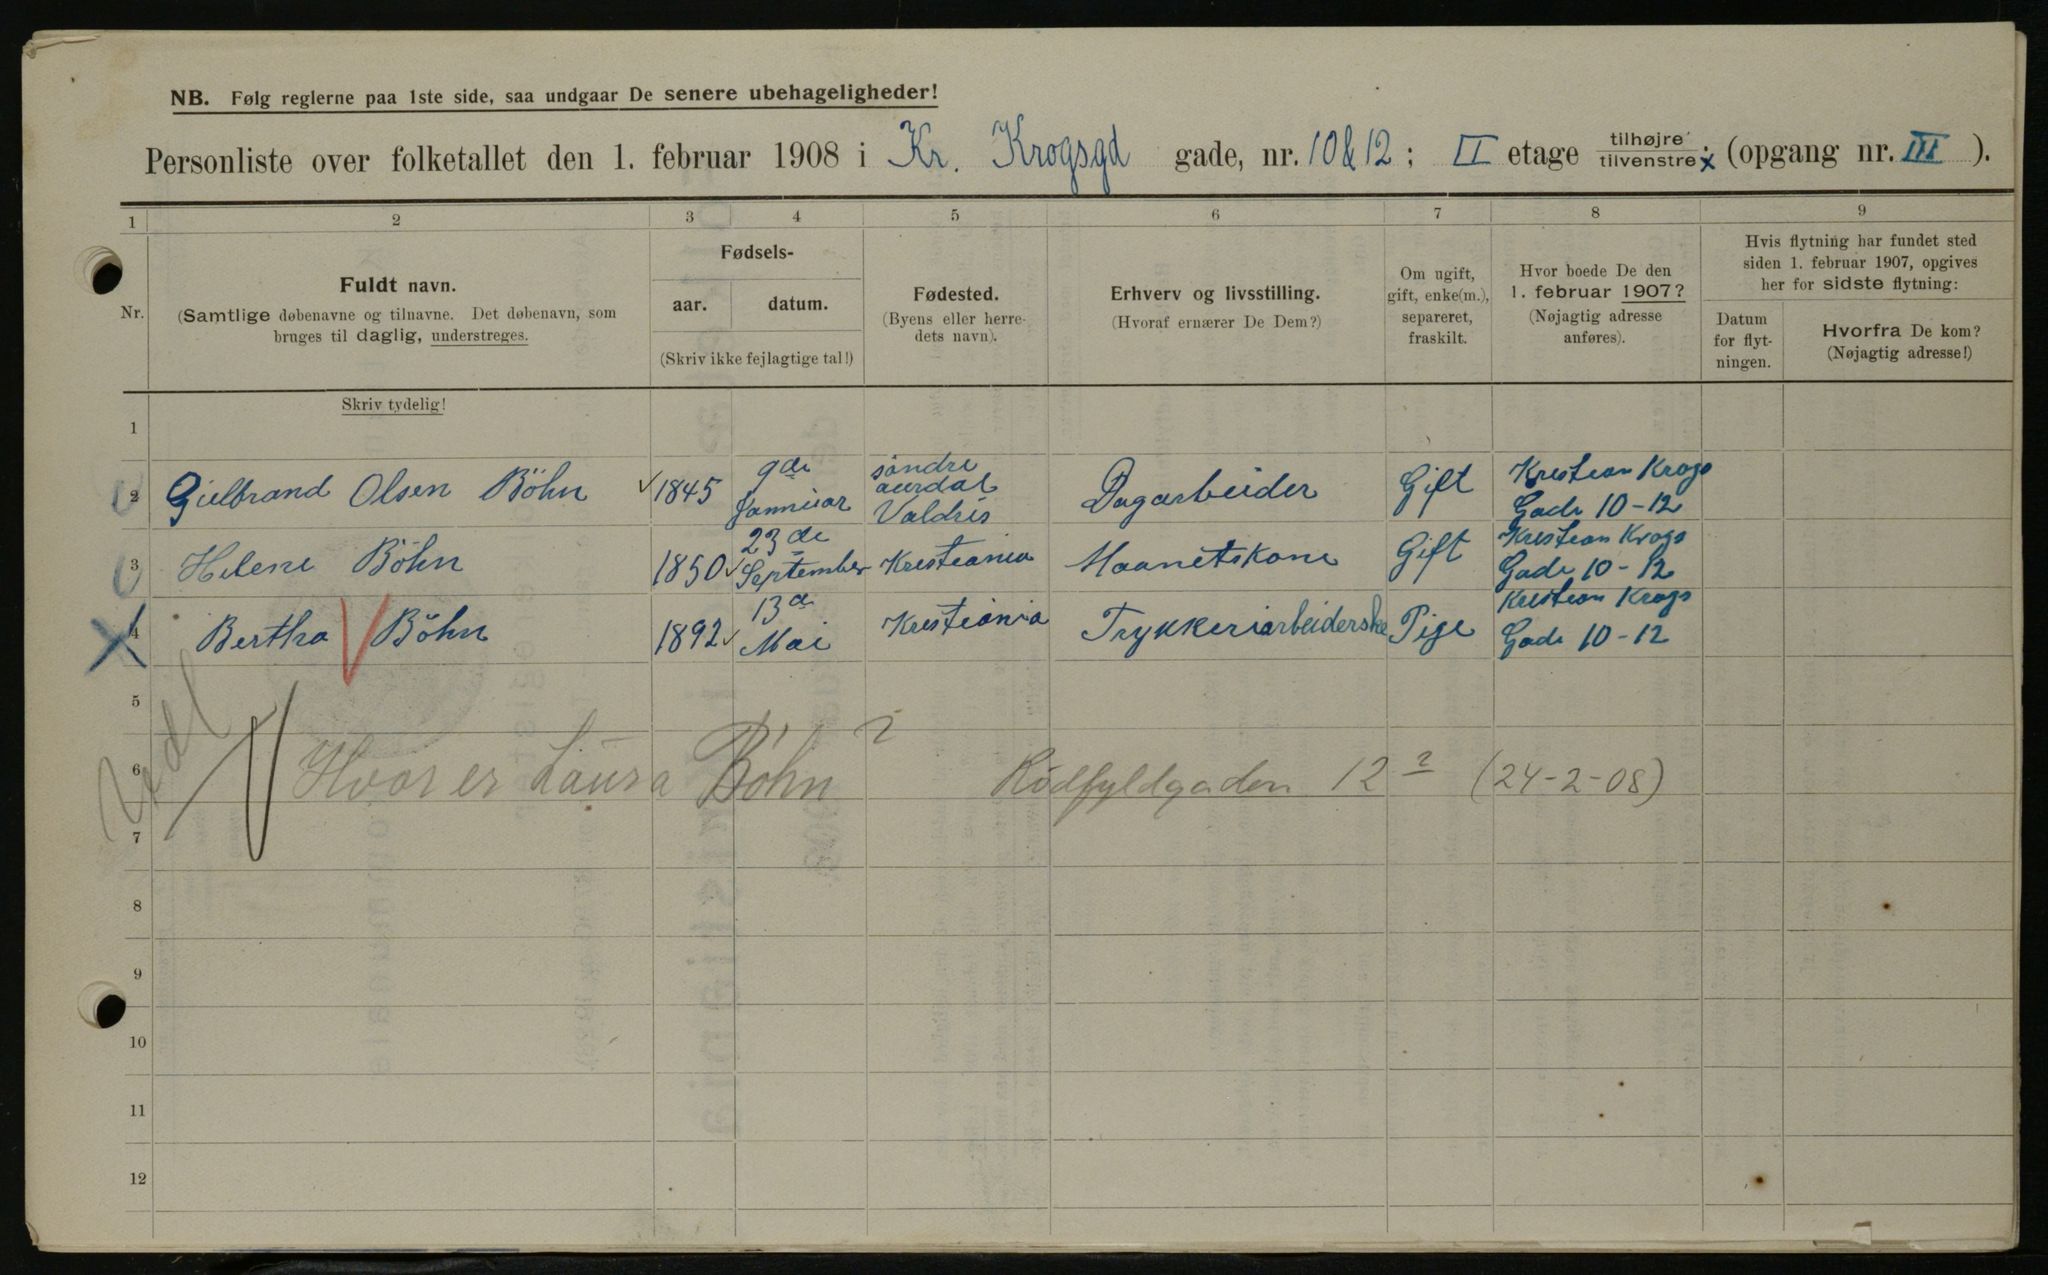 NB. Følg reglerne paa 1ste side, saa undgaar De senere ubehageligheder!
Personliste over folketallet den 1. februar 1908 i Kr. Krogsgd gade, nr. 10 & 12; II etage tilhøjre tilvenstre x (opgang nr. III ).
1 2 3 4 5 6 7 8 9
Nr.
Fuldt navn.
(Samtlige døbenavne og tilnavne. Det døbenavn, som
bruges til daglig, understreges.
Skriv tydelig!
Fødsels-
aar. datum.
(Skriv ikke fejlagtige tal!)
Fødested.
(Byens eller herre-
dets navn).
Erhverv og livsstilling.
(Hvoraf ernærer De Dem?)
Om ugift,
gift, enke(m.),
separeret,
fraskilt.
Hvor boede De den
1. februar 1907?
(Nøjagtig adresse
anføres).
Hvis flytning har fundet sted
siden 1. februar 1907, opgives
her for sidste flytning:
Datum
for flyt-
ningen.
Hvorfra De kom?
(Nøjagtig adresse!)
1
2 Gulbrand Olsen Böhn 1845 9de Januar söndre aurdal Valdris Dagarbeider Gift Kristian Krogs Gade 10-12
3 Helene Böhn 1850 23de September Kristiania Haanetskone Gift Kristian Krogs Gade 10-12
4 Bertha Böhn 1892 13d Mai Kristiania Trykkeriarbeiderske Pige Kristian Krogs Gade 10-12
5
6 Hvor er Laura Böhn ? Rödfyldgaden 12 2 (24-2-08)
7
8
9
10
11
12